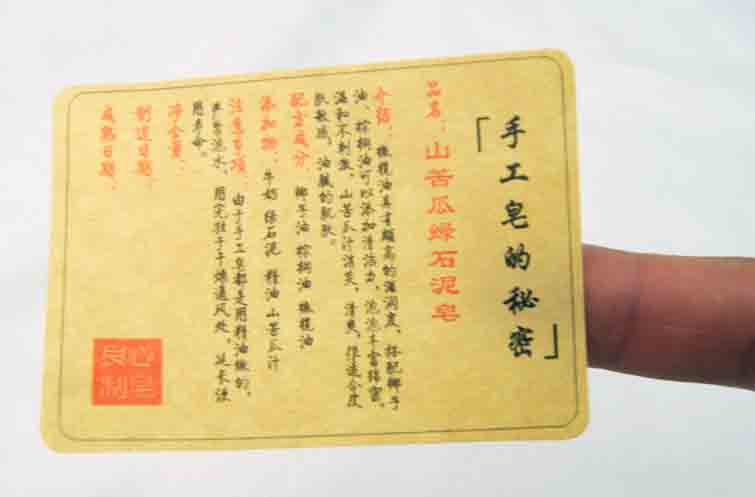 「手工皂的秘密」
品名：山苦瓜绿石泥皂
介绍：橄榄油具有颇高的滋润度，搭配椰子
油、棕榈油可以添加清洁力，泡泡丰富绵密，
温和不刺激，山苦瓜汁消炎，清爽，很适合皮
肤敏感，油腻的肌肤。
配方成分：椰子油 棕榈油 橄榄油
添加物：牛奶 绿石泥 精油 山苦瓜汁
注意事项：由于手工皂都是用精油做的，
泡水，用完驻于干燥通风处，延长使
用寿命。
净含量：
制造日期：
成熟日期：
心皂
良制